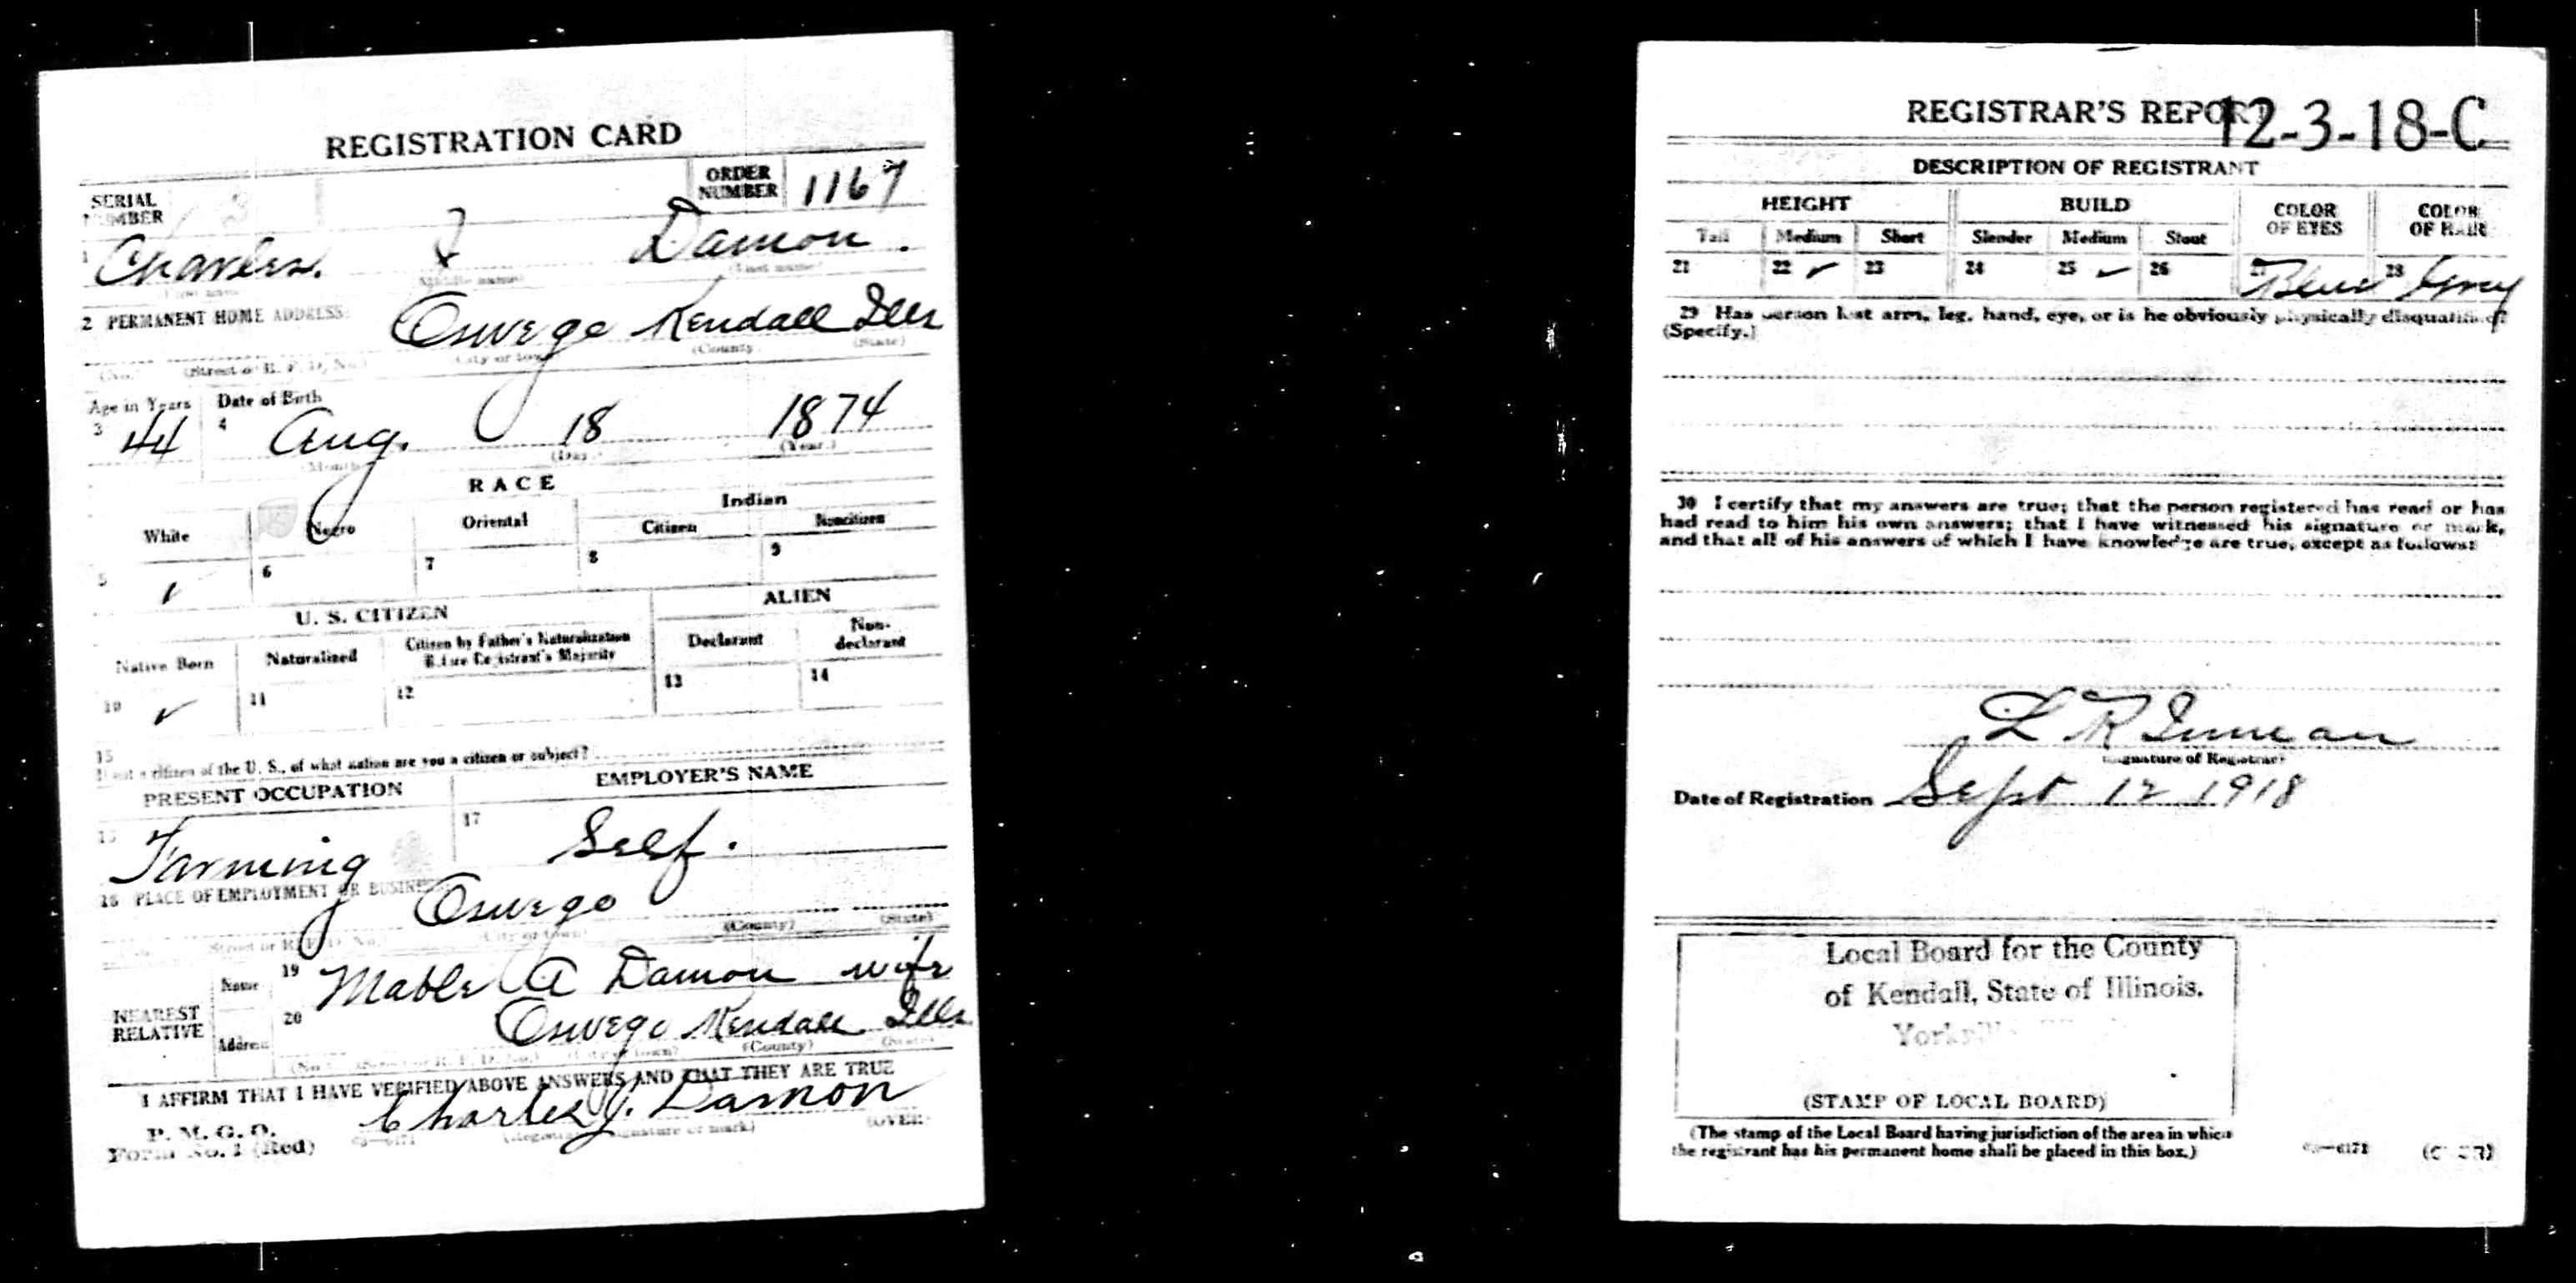 REGISTRATION CARD
SERIAL NUMBER
ORDER NUMBER 1167
1 Charles J Damon.
(Middle name) (Last name)
2 PERMANENT HOME ADDRESS:
Oswego Kendall Ills
(No.) (Street or R. F. D. No.) (City or town) (County) (State)
Age in Years Date of Birth
3 44 4 Aug. 18 1874
(Month) (Day.) (Year.)
RACE
White Negro Oriental Indian
Citizen Noncitizen
5 ✓ 6 7 8 9
U. S. CITIZEN ALIEN
Native Born Naturalized Citizen by Father's Naturalization Before Registrant's Majority Declarant Non-declarant
10 ✓ 11 12 13 14
15
If not a citizen of the U. S., of what nation are you a citizen or subject?
PRESENT OCCUPATION EMPLOYER'S NAME
Farming 17 Self.
18 PLACE OF EMPLOYMENT OR BUSINESS
Oswego
Street or R. F. D. No.) (City or town) (County) (State)
NEAREST RELATIVE
Name 19 Mable A Damon wife
Address 20 Oswego Kendall Ills
(City or town) (County) (State)
I AFFIRM THAT I HAVE VERIFIED ABOVE ANSWERS AND THAT THEY ARE TRUE
P. M. G. O.
Form No. 1 (Red)
Charles J. Damon
(Registrant's signature or mark) (OVER)
REGISTRAR'S REPORT
12-3-18-C
DESCRIPTION OF REGISTRANT
HEIGHT BUILD COLOR OF EYES COLOR OF HAIR
Tall Medium Short Slender Medium Stout
21 22 ✓ 23 24 25 ✓ 26 27 Blue 28 Grey
29 Has person lost arm, leg, hand, eye, or is he obviously physically disqualified?
(Specify.)
30 I certify that my answers are true; that the person registered has read or has
had read to him his own answers; that I have witnessed his signature or mark,
and that all of his answers of which I have knowledge are true, except as follows:
L R
(Signature of Registrar)
Date of Registration Sept 12 1918
Local Board for the County
of Kendall, State of Illinois.
(STAMP OF LOCAL BOARD)
(The stamp of the Local Board having jurisdiction of the area in which
the registrant has his permanent home shall be placed in this box.)
(OVER)